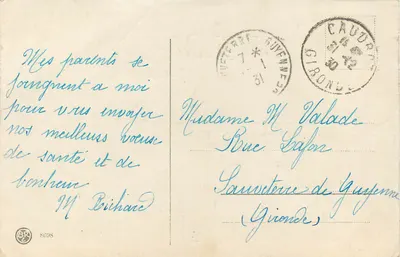 Mes parents se
joingnent a moi
pour vous envoyer
nos meilleurs voeux
de santé et de
bonheur
M Richard
SAUVETERRE-DE-GUYENNE
7 *
1
31
CAUDROT
GIRONDE
31 12
30
Madame M Valade
Rue Lafon
Sauveterre de Guyenne
(Gironde)